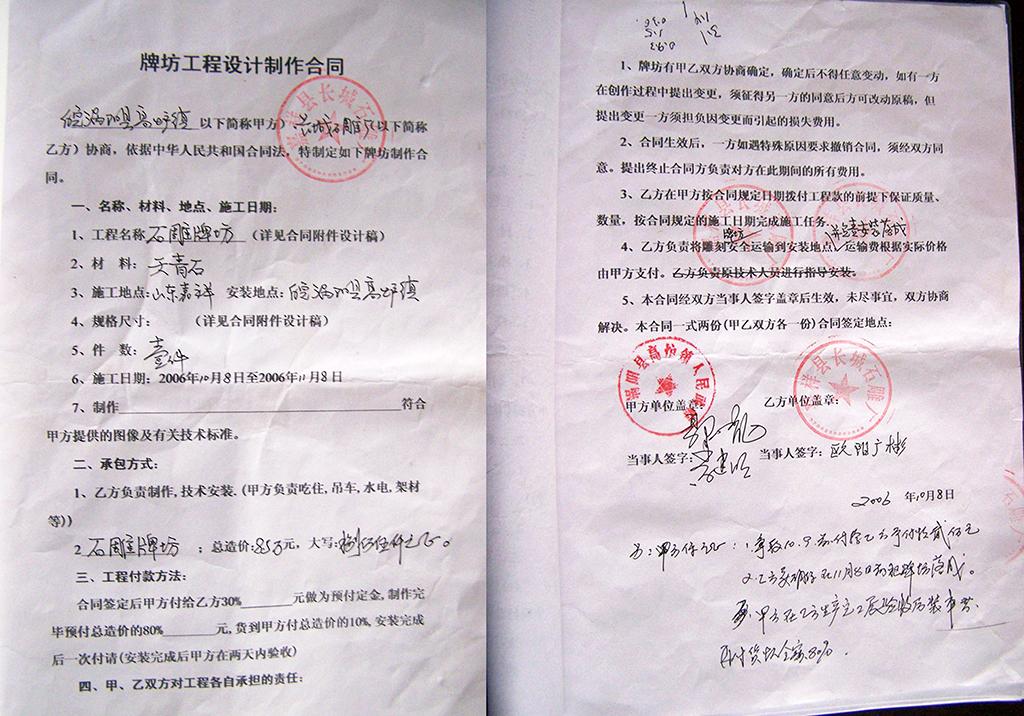 牌坊工程设计制作合同
皖涡阳县高炉镇 以下简称甲方) 长城石雕厂(以下简称
乙方) 协商, 依据中华人民共和国合同法, 特制定如下牌坊制作合
同。
一、名称、材料、地点、施工日期:
1、工程名称 石雕牌坊 (详见合同附件设计稿)
2、材 料: 天青石
3、施工地点: 山东嘉祥 安装地点: 皖涡阳县高炉镇
4、规格尺寸: (详见合同附件设计稿)
5、件 数: 壹件
6、施工日期: 2006年10月8日至2006年11月8日
7、制作 符合
甲方提供的图像及有关技术标准。
二、承包方式:
1、乙方负责制作, 技术安装. (甲方负责吃住, 吊车, 水电, 架材
等))
2 石雕牌坊 ; 总造价: 元, 大写: 捌万伍仟元正。
三、工程付款方法:
合同签定后甲方付给乙方30% 元做为预付定金, 制作完
毕预付总造价的80% 元, 货到甲方付总造价的10%, 安装完成
后一次付请(安装完成后甲方在两天内验收)
四、甲、乙双方对工程各自承担的责任:
1、牌坊有甲乙双方协商确定，确定后不得任意变动，如有一方
在创作过程中提出变更，须征得另一方的同意后方可改动原稿，但
提出变更一方须担负因变更而引起的损失费用。
2、合同生效后，一方如遇特殊原因要求撤销合同，须经双方同
意。提出终止合同方负责对方在此期间的所有费用。
3、乙方在甲方按合同规定日期拨付工程款的前提下保证质量、
数量，按合同规定的施工日期完成施工任务
牌坊 并负责安装落成
4、乙方负责将雕刻安全运输到安装地点，运输费根据实际价格
由甲方支付。乙方负责原技术人员进行指导安装。
5、本合同经双方当事人签字盖章后生效，未尽事宜，双方协商
解决。本合同一式两份(甲乙双方各一份)合同签定地点:
涡阳县高炉镇人民政府
嘉祥县长城石雕厂
甲方单位盖章: 乙方单位盖章:
当事人签字: 当事人签字: 欧阳广彬
2006 年10月8日